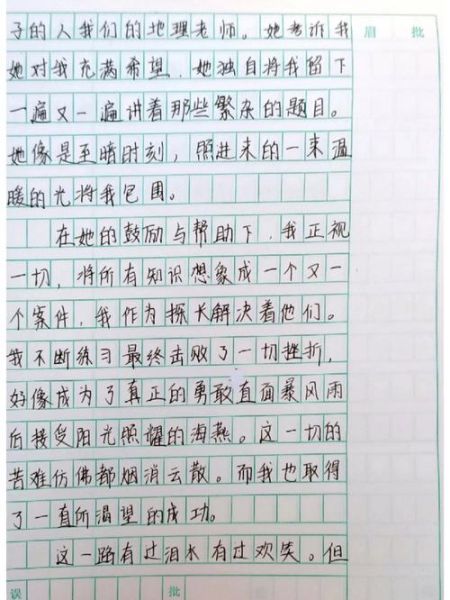 子的人我们的地理老师。她告诉我
她对我充满希望，她独自将我留下
一遍又一遍讲着那些繁杂的题目。
她像是至暗时刻，照进来的一束温
暖的光将我包围。
在她的鼓励与帮助下，我正视
一切，将所有知识想象成一个又一
个案件，我作为探长解决着他们。
我不断练习最终击败了一切挫折，
好像成为了真正的勇敢直面暴风雨
后接受阳光照耀的海燕。这一切的
苦难仿佛都烟消云散。而我也取得
了一直所渴望的成功。
这一路有过泪水有过欢笑。但
眉批
误
批